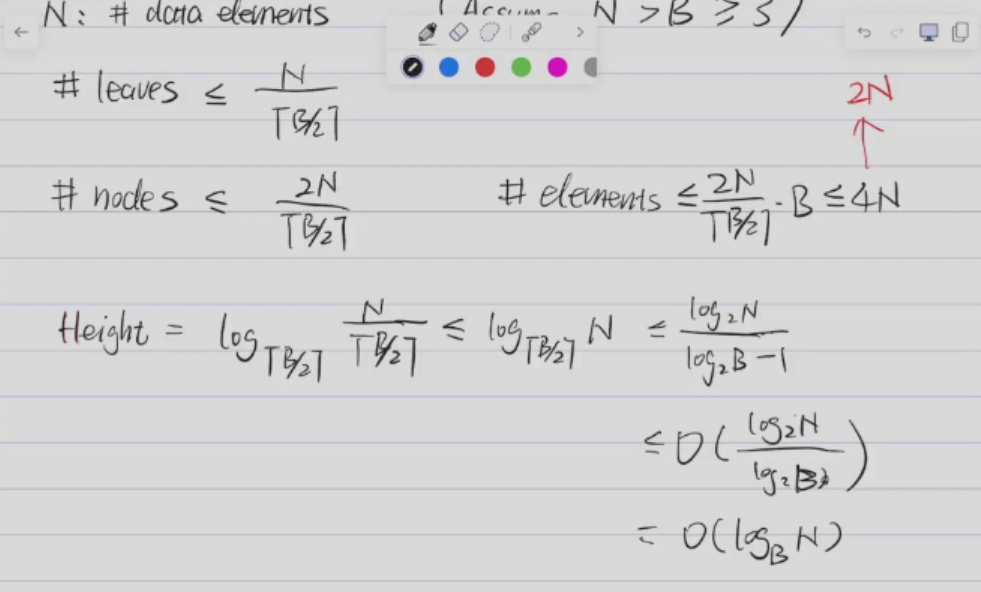 N : # data elements (Assume N > B ≥ 3)
# leaves ≤ N / ⌈B/2⌉
2N
# nodes ≤ 2N / ⌈B/2⌉
# elements ≤ 2N / ⌈B/2⌉ · B ≤ 4N
Height = log_⌈B/2⌉ N / ⌈B/2⌉ ≤ log_⌈B/2⌉ N ≤ log₂N / log₂B − 1
≤ O( log₂N / log₂B )
= O(log_B N)